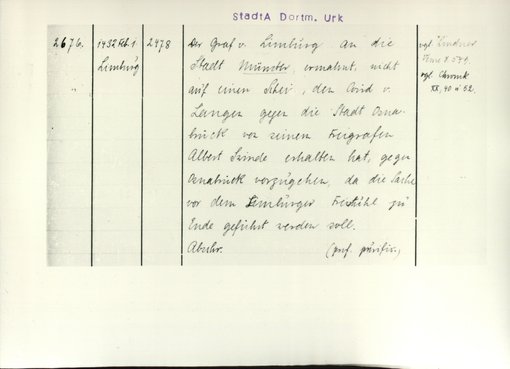 StadtA Dortm. Urk
2676. 1432 Feb. 1 2478 Der Graf v. Limburg an die
Limburg Stadt Münster, ermahnt, nicht
auf einen Schei, den Arnd v.
Langen gegen die Stadt Osna-
brück von seinem Freigrafen
Albert Swinde erhalten hat, gegen
Osnabrück vorzugehen, da die Sache
vor dem Limburger Freistuhl zu
Ende geführt werden soll.
Abschr. (prof. purific.)
vgl. Lindner
Veme S. 571.
vgl. Chronik
XX, 40 u 52.